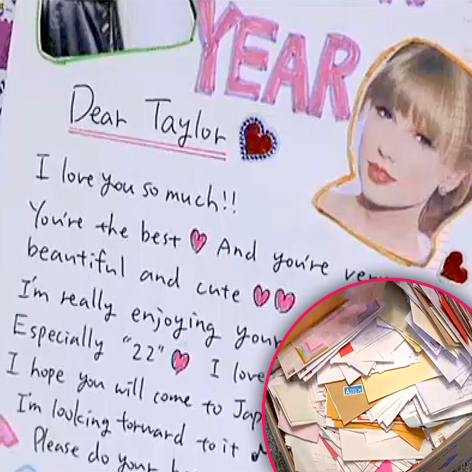 YEAR
Dear Taylor
I love you so much!!
You're the best And you're very
beautiful and cute
I'm really enjoying your
Especially "22" I love
I hope you will come to Jap
I'm looking forward to it
Please do your